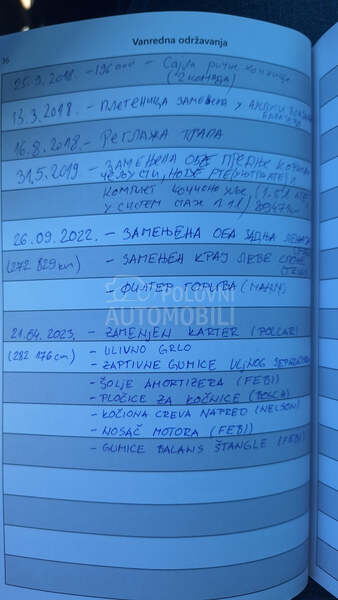 36
Vanredna održavanja
25.9.2018. - 196 000 - Сајла ручне кочнице
(2 комада)
13.3.2018. - ПЛЕТЕНИЦА ЗАМЕЊЕНА У
16.8.2018. - РЕГЛАЖА ТРАПА
31.5.2019 - ЗАМЕЊЕНА ОБЕ ПРЕДЊЕ
КОМПЛЕТ КОЧИОНО УЉЕ
У СИСТЕМ
26.09.2022. - ЗАМЕЊЕНА ОБА ЗАДЊА
(272 829 km) - ЗАМЕЊЕН КРАЈ ЛЕВЕ СПОНЕ
- ФИЛТЕР ГОРИВА (MANN)
POLOVNI
AUTOMOBILI
21.04.2023. - ZAMENJEN KARTER (POLCAR)
(282 176 km) - ULIVNO GRLO
- ZAPTIVNE GUMICE ULJNOG
- ŠOLJE AMORTIZERA (FEBI)
- PLOČICE ZA KOČNICE (BOSCH)
- KOČIONA CREVA NAPRED (NELSON)
- NOSAČ MOTORA (FEBI)
- GUMICE BALANS ŠTANGLE (FEBI)